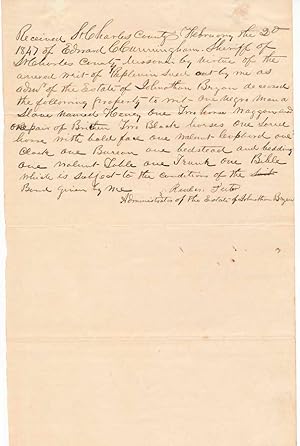 Received St Charles County February the 2d
1847 of Edward C Cunningham Sheriff of
St Charles County Missouri by virtue of the
annexed writ of Replevin Sued out by me as
admr of the Estate of Johnathan Bryan deceased
the following property to wit - one Negro Man a
Slave named one Two horse Waggon and
one pair of Two Black horses One Sorrel
horse with bald face one walnut Cupboard one
Clock one Bureau one bedstead and bedding
one walnut Table one Trunk one Bible
which is subject to the conditions of the
Bond given by me
Administrator of the Estate of Johnathan Bryan